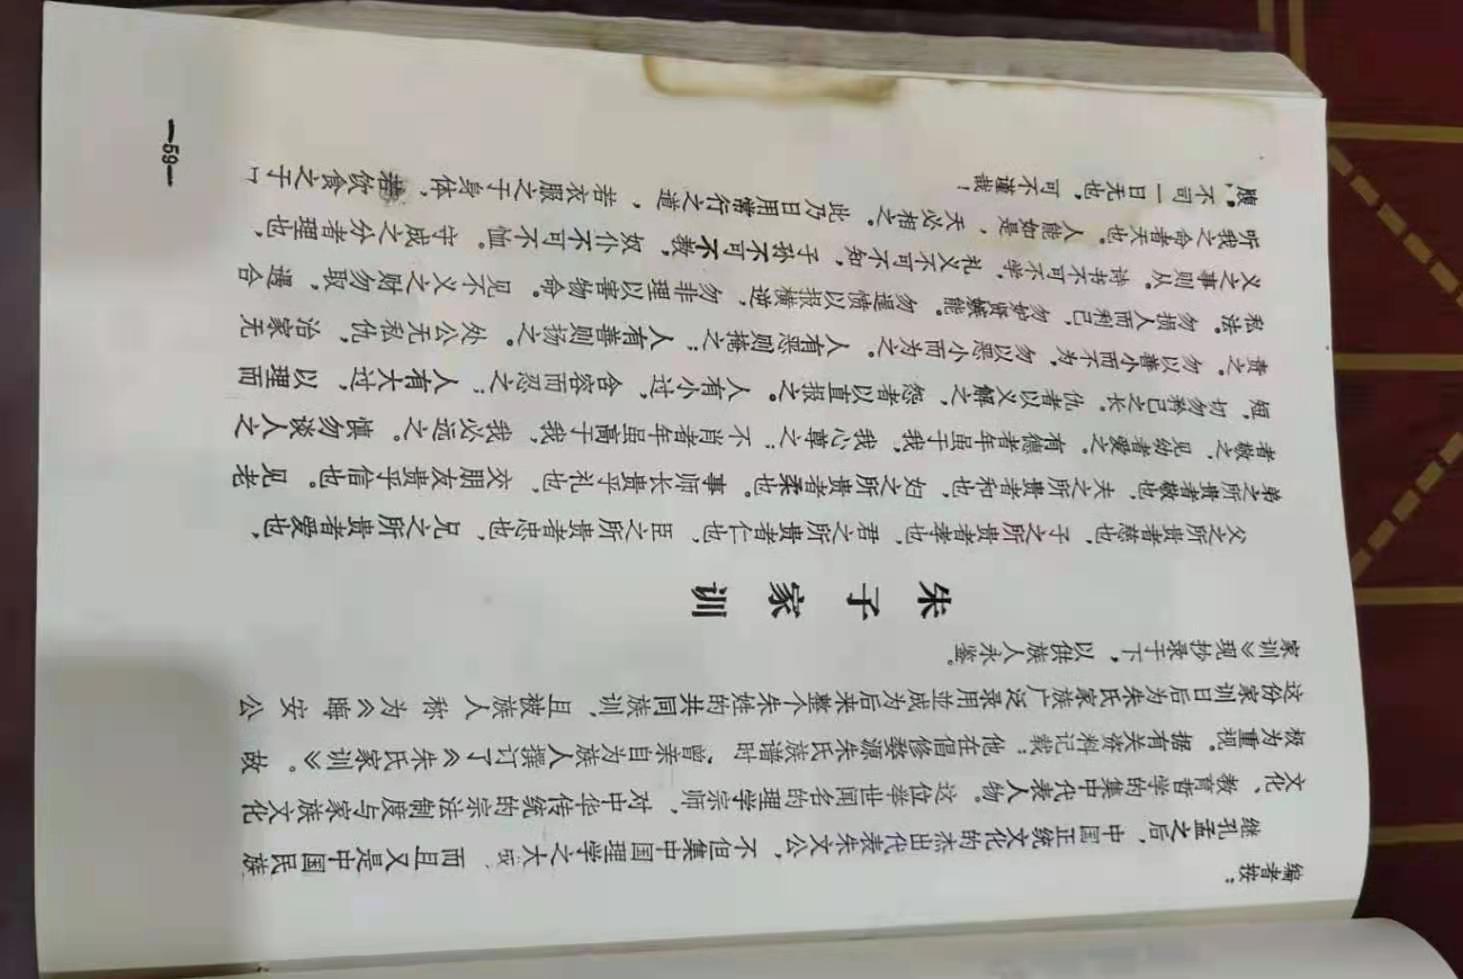 编者按：
继孔孟之后，中国正统文化的杰出代表朱文公，不但集中国理学之大成、而且又是中国民族
文化、教育哲学的集中代表人物。这位举世闻名的理学宗师，对中华传统的宗法制度与家族文化
极为重视。据有关资料记载：他在倡修婺源朱氏族谱时，曾亲自为族人撰订了《朱氏家训》。故
这份家训日后为朱氏家族广泛录用並成为后来整个朱姓的共同族训，且被族人称为《晦安公
家训》现抄录于下，以供族人永鉴。
朱子家训
父之所贵者慈也，子之所贵者孝也，君之所贵者仁也，臣之所贵者忠也，兄之所贵者爱也，
弟之所贵者敬也，夫之所贵者和也，妇之所贵者柔也。事师长贵乎礼也，交朋友贵乎信也。见老
者敬之，见幼者爱之。有德者年虽于我，我心尊之；不肖者年虽高于我，我必远之。慎勿谈人之
短，切勿矜己之长。仇者以义解之，怨者以直报之。人有小过，含容而忍之；人有大过，以理而
责之。勿以善小而不为，勿以恶小而为之。人有恶则掩之；人有善则扬之。处公无私仇，治家无
私法。勿损人而利己，勿妒贤嫉能。勿逞愤以报横逆，勿非理以害物命。见不义之财勿取，遇合
义之事则从。诗书不可不学，礼义不可不知，子孙不可不教，奴仆不可不恤。守成之分者理也，
听我之命者天也。人能如是，天必相之。此乃日用常行之道，若衣服之于身体，若饮食之于口
腹，不可一日无也，可不谨哉！
—59—